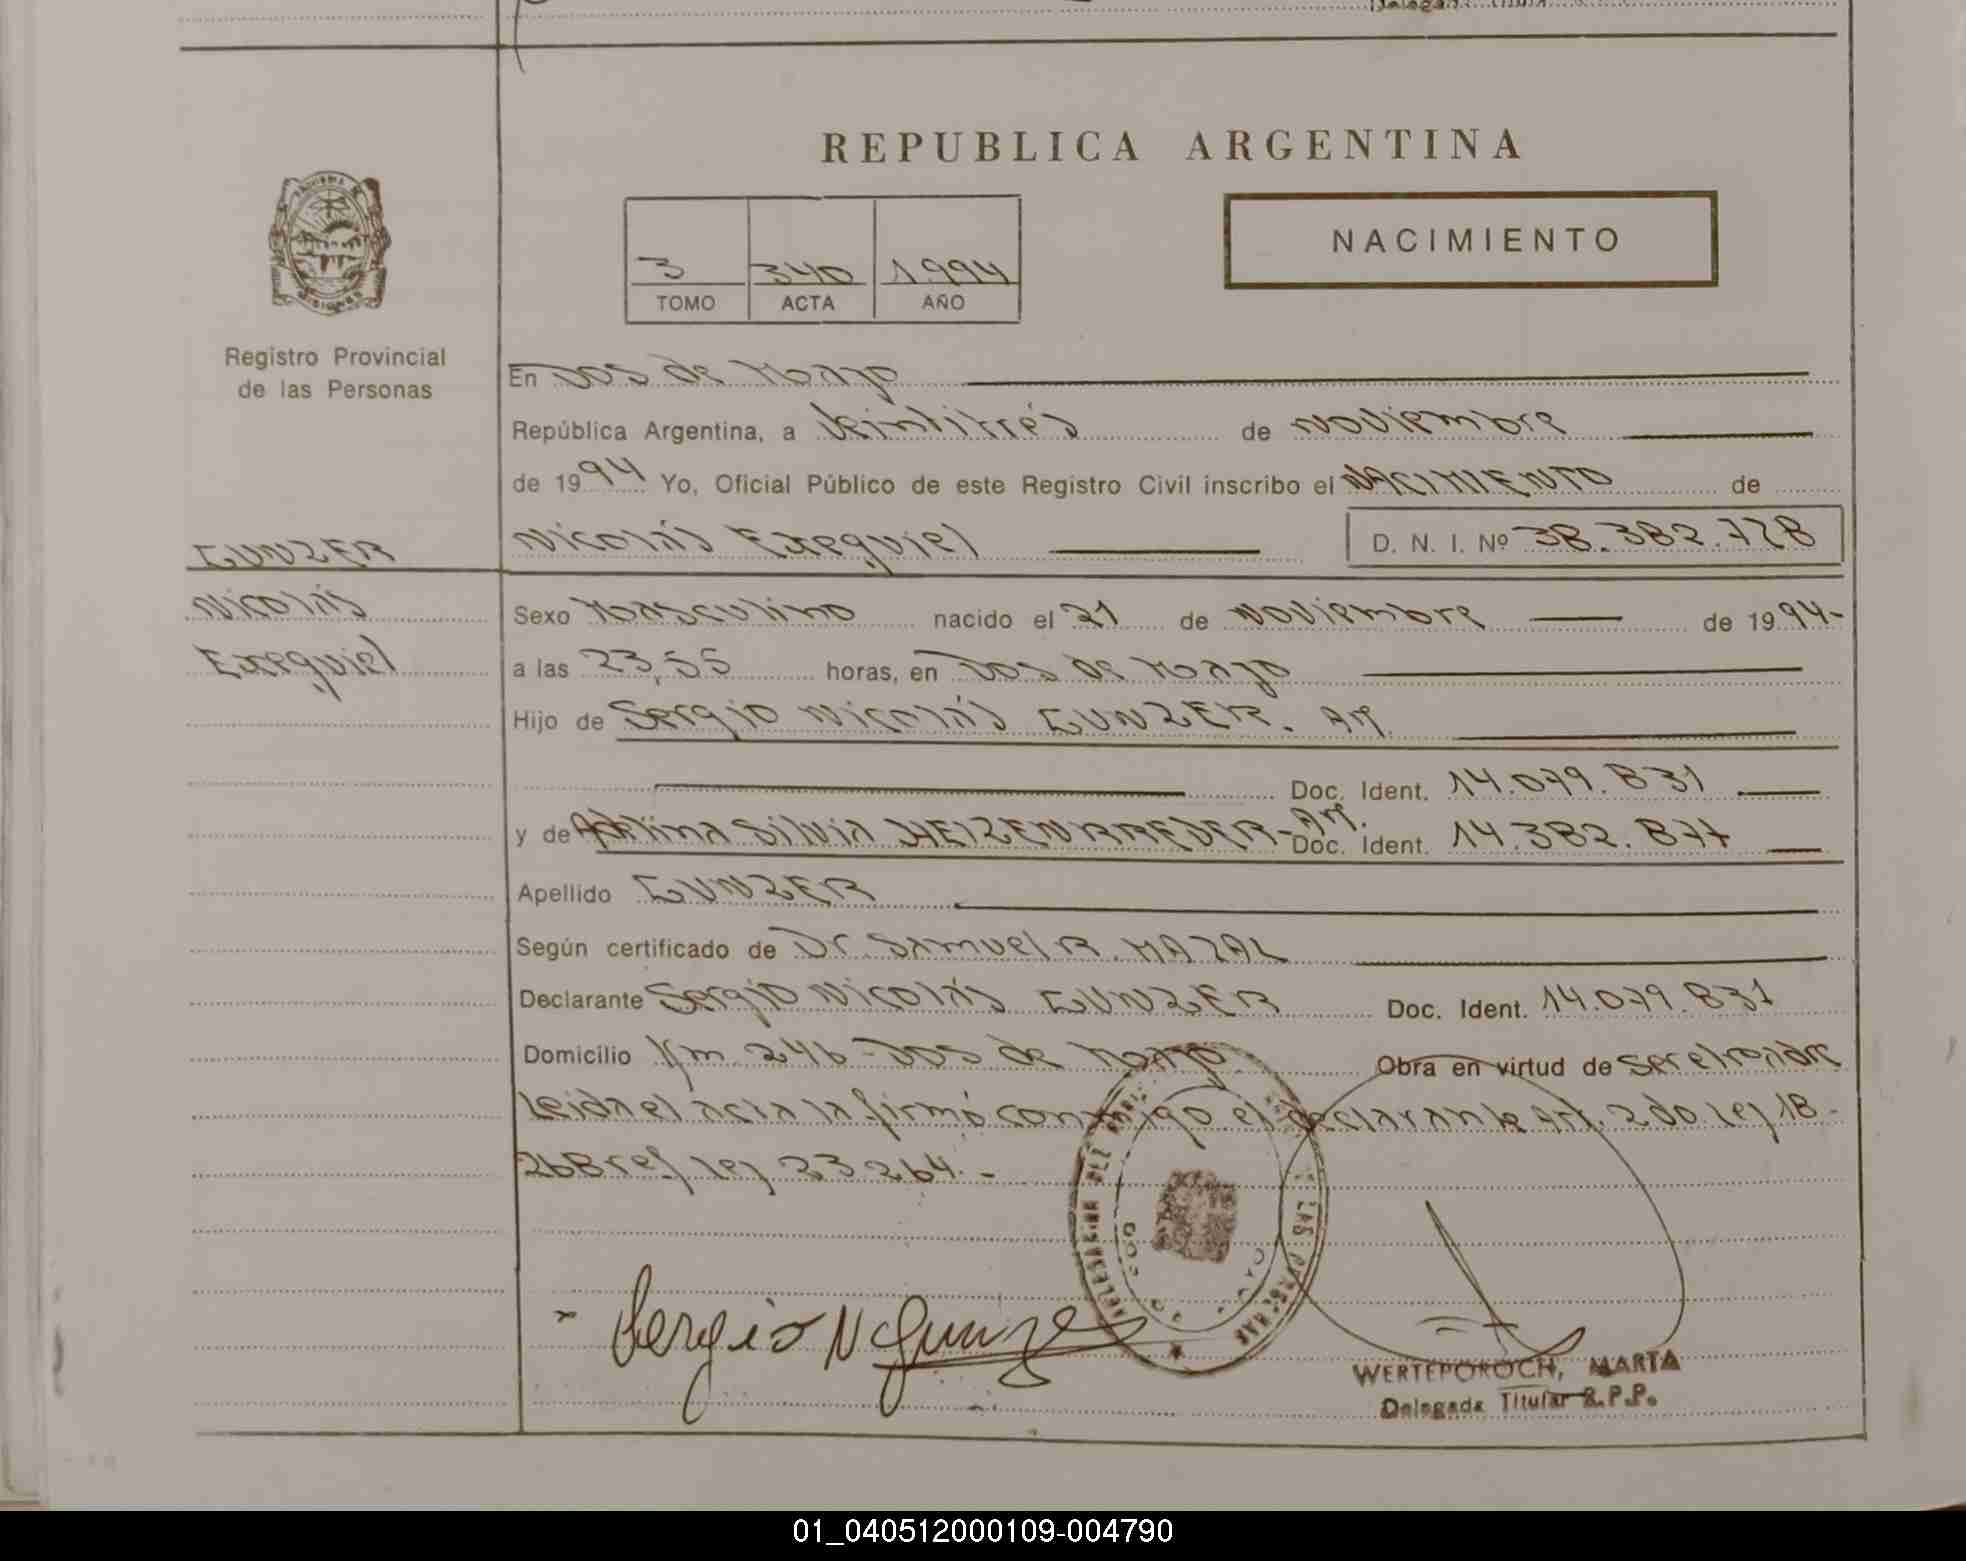 REPUBLICA ARGENTINA
NACIMIENTO
3 340 1.994
TOMO ACTA AÑO
Registro Provincial
de las Personas
En Dos de Mayo
República Argentina, a Veintitrés de noviembre
de 1994 Yo, Oficial Público de este Registro Civil inscribo el NACIMIENTO de
GUNZER
Nicolás Exequiel D. N. I. Nº 38.382.728
Nicolás
Exequiel
Sexo Masculino nacido el 21 de noviembre de 1994-
a las 23,55 horas, en Dos de Mayo
Hijo de Sergio Nicolás GUNZER. Ar.
Doc. Ident. 14.079.831
y de Silvia HEIZENRREDER- Ar. Doc. Ident. 14.382.877
Apellido GUNZER
Según certificado de Dr. Samuel R. MAZAL
Declarante Sergio Nicolás GUNZER Doc. Ident. 14.079.831
Domicilio Km 246-Dos de Mayo Obra en virtud de ser el padre
Leida el acta la firmó conmigo el declarante Art. 2do. Ley 18.-
268 ref. ley 23264.-
DELEGACION DEL LAS PERSONAS
DOS DE
Sergio N Gunzer
WERTEPOROCH, MARTA
Delegada Titular R.P.P.
01_040512000109-004790